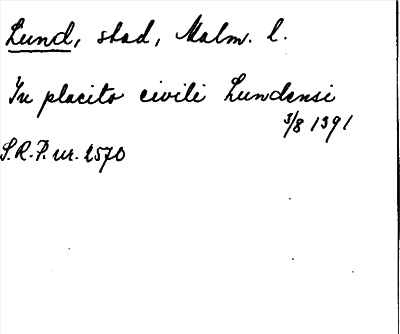 Lund, stad, Malm. l.
In placito civili Lundensi
3/8 1391
S.R.P. nr. 2570